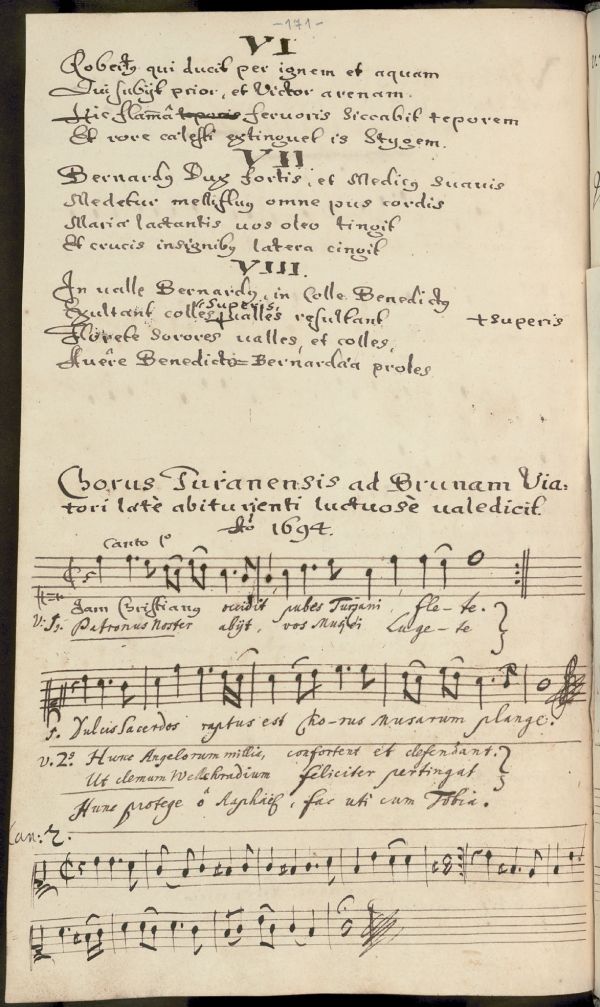 -171-
VI
Robertus qui ducit per ignem et aquam
Qui subijt prior, et Victor arenam.
Hic flamâ teporis fervoris siccabit teporem
Et rore cælesti extinguet is Stygem.
VII
Bernardus Dux fortis, et Medicus suavis
Medetur mellifluus omne pus cordis
Mariæ lactantis vos oleo tingit
Et crucis insignibus latera cingit
VIII.
In valle Bernardus, in Colle Benedictus
Exultant colles, valles resultant +superis
Florete sorores valles, et colles,
Benedicto= Bernardæa proles
Chorus Turanensis ad Brunam Via:
tori latè abiturienti luctuosè valedicit.
Aõ 1694.
Canto 1º
Jam Christianus occidit, pubes Turjani, fle-te.
V: 1. Patronus noster abijt, vos Musæi Luge-te
Dulcis Sacerdos raptus est Cho-rus Musarum plange.
v. 2º. Hunc Angelorum millia, confortent et defendant.
Ut demum Wellehradium feliciter pertingat
Hunc protege ô Raphäel, fac uti cum Tobia.
Can: 2.